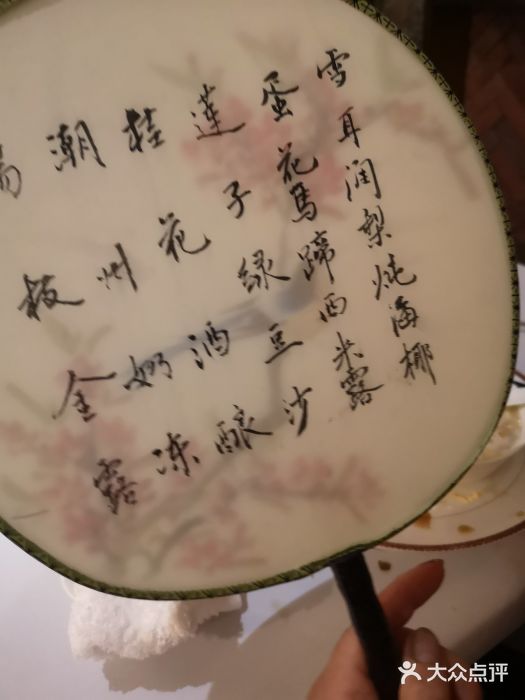 雪耳润梨炖海椰
蛋花馬蹄西米露
莲子绿豆沙
桂花酒酿
潮州奶冻
杨枝金露
大众点评